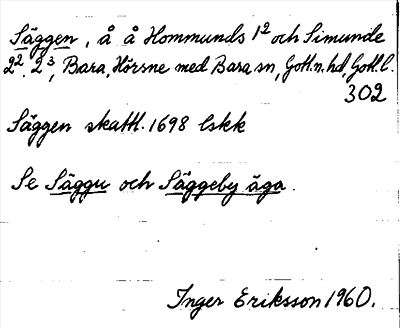 Säggen, å å Hommunds 1² och Simunde
2², 2³, Bara, Hörsne med Bara sn, Gotl.n.hd, Gotl.l.
302
Säggen skattl. 1698 lskk
Se Säggu och Säggeby äga.
Inger Eriksson 1960.